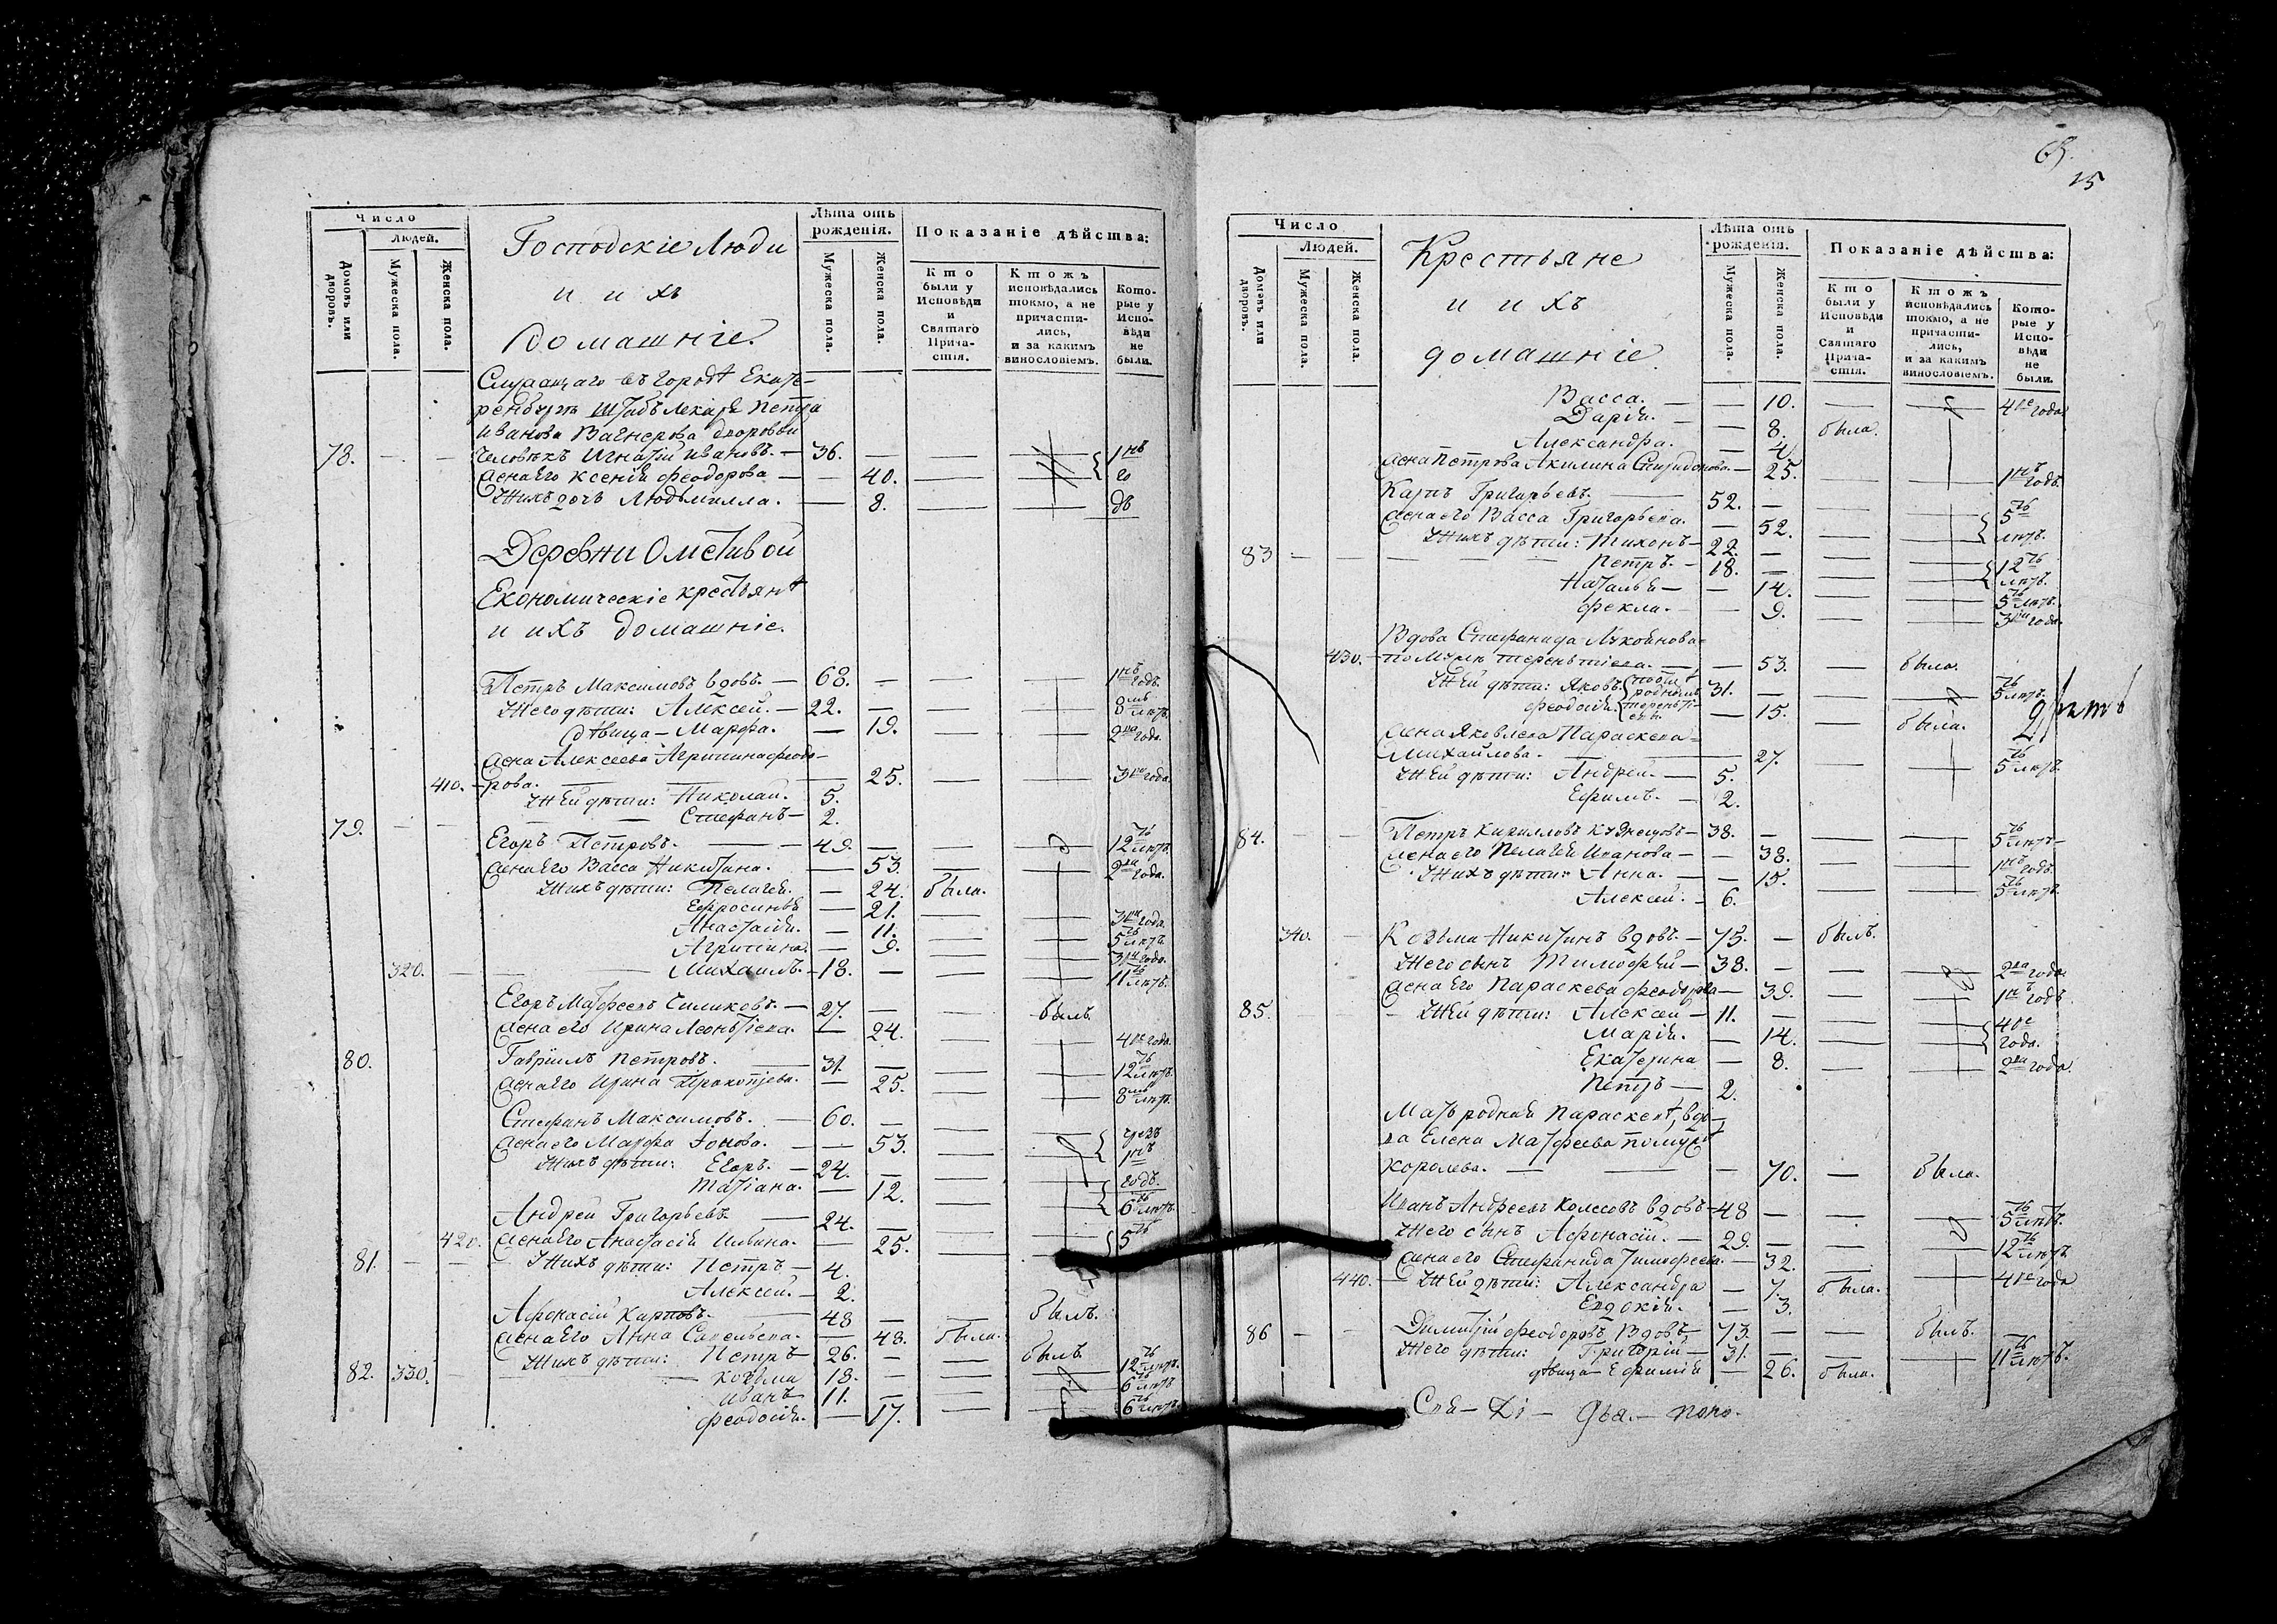 Число
Людей.
Домовъ или дворовъ.
Мужеска пола.
Женска пола.
Господскіе Люди
и ихъ
домашніе.
Лѣта отъ рожденія.
Мужеска пола.
Женска пола.
Показаніе дѣйства:
Кто были у Исповѣди и Святаго Причастія.
Ктожъ исповѣдались токмо, а не причастились, и за какимъ винословіемъ.
Которые у Исповѣди не были.
въ городѣ Екате-
ренбургѣ штабъ лекаря Петра
Иванова Вагнерова дворовой
78. — — человѣкъ Игнатій Ивановъ. — 36. — — — 1нъ
жена его Ксенія Феодорова — — 40. — — го
Ихъ дочь Людьмилла. — — 8. — — дъ
Деревни Ометивой
Економическіе крестьянѣ
и ихъ домашніе.
Петръ Максимовъ вдовъ. — 68. — — — 1нъ годъ.
Его дѣти: Алексей. — 22. — — — 8мь лѣтъ.
дѣвица — Марфа. — — 19. — — 2ва года.
жена Алексеева Агрипина Феодо-
410. — рова. — — 25. — — 3ри года.
Ей дѣти: Николай. — 5.
79. — — — — Стефанъ — 2.
Егоръ Петровъ. — — 49. — — — 12ть лѣтъ.
жена Его Васса Никитина. — — 53. — — 2ва года.
Ихъ дѣти: Пелагея. — — 24. была.
Ефросинья — 21. — — 3ри года.
Анастасія. — — 11. — — 5ть лѣтъ.
Агрипина. — — 9. — — 3ри года.
320. — — — Михаилъ. — 18. — — — 11ть лѣтъ.
Егоръ Матфеевъ — 27. — — былъ.
жена его Ирина Леонтіева. — — 24. — — 4ре года.
80. Гавріилъ Петровъ. — 31. — — — 12ть лѣтъ.
жена Его Ирина Прокопіева. — — 25. — — 8мь лѣтъ.
Стефанъ Максимовъ. — 60. — — —
жена его Марфа — — 53. — — 1нъ
Ихъ дѣти: Егоръ. — 24. — — — годъ.
Татіана. — — 12. — — 6ть лѣтъ.
Андрей Григорьевъ — 24. — — —
420. жена Его Анастасія — — 25. — — 5ть
81. — — Ихъ дѣти: Петръ — 4.
Алексей. — 2.
Афонасій Карповъ. — 48 — — былъ.
жена Его Анна Савельева. — — 48. была.
Ихъ дѣти: Петръ — 26. — — былъ. 12ть лѣтъ.
82. 330. — — — Козьма 18. — — — 6ть лѣтъ
Иванъ 11. — — — 6ть лѣтъ.
Феодосія. — 17. — —
15
Число
Людей.
Домовъ или дворовъ.
Мужеска пола.
Женска пола.
Крестьяне
и ихъ
домашніе.
Лѣта отъ рожденія.
Мужеска пола.
Женска пола.
Показаніе дѣйства:
Кто были у Исповѣди и Святаго Причастія.
Ктожъ исповѣдались токмо, а не причастились, и за какимъ винословіемъ.
Которые у Исповѣди не были.
Васса. — — 10. — — 4ре года.
Дарія. — — 8. была.
Александра. — 4.
жена Петрова Акилина Спиридонова. — 25. — — 1нъ годъ.
Карпъ Григорьевъ. — 52. — — —
жена его Васса Григорьева. — — 52. — — 5ть
83 — Ихъ дѣти: Тихонъ — 22. — — — лѣтъ.
— — — Петръ. — 18. — — — 12ть
Наталья — — 14. — — лѣтъ. 5ть лѣтъ.
Фекла. — — 9. — — 3ри года.
Вдова Стефанида
430. — по мужѣ Терентіева. — — 53. — была.
Ей дѣти: Яковъ 31. — — — 5ть лѣтъ.
Феодосія — 15. — была.
жена Яковлева Параскева
Михайлова. — — 27. — — 5ть лѣтъ.
Ей дѣти: Андрей. — 5.
Ефимъ. — 2.
84. — — Петръ Кирилловъ Кузнецовъ — 38. — — — 5ть лѣтъ
жена его Пелагея Иванова — — 38. — — 1нъ годъ.
Ихъ дѣти: Анна. — — 15. — — 5ть лѣтъ.
Алексей. — 6.
340. — Козьма Никитинъ вдовъ. — 75. — былъ.
Его сынъ Тимофей — 38. — — — 2ва года.
жена Его Параскева Феодорова — 39. — — 1нъ годъ.
85. — Ей дѣти: Алексей — 11. — — — 4ре
Марія. — 14. — — года.
Екатерина — 8. — — 2ва года.
Петръ — 2.
Мать родная Параскевѣ, вдо-
ва Елена Матфеева по мужѣ
Королева. — — — 70. — была.
Иванъ Андреевъ Колесовъ вдовъ — 48 — — — 5ть лѣтъ.
Его сынъ Афонасій. — 29. — — — 12ть лѣтъ.
жена его Стефанида Тимофеева. — 32. — — 4ре года
440. — Ей дѣти: Александра — 7. была.
Евдокія. — 3.
86 — — Димитрій Феодоровъ Вдовъ — 73. — — былъ.
Его дѣти: Григорій — 31. — — — 11ть лѣтъ.
дѣвица Ефимія — 26. была.